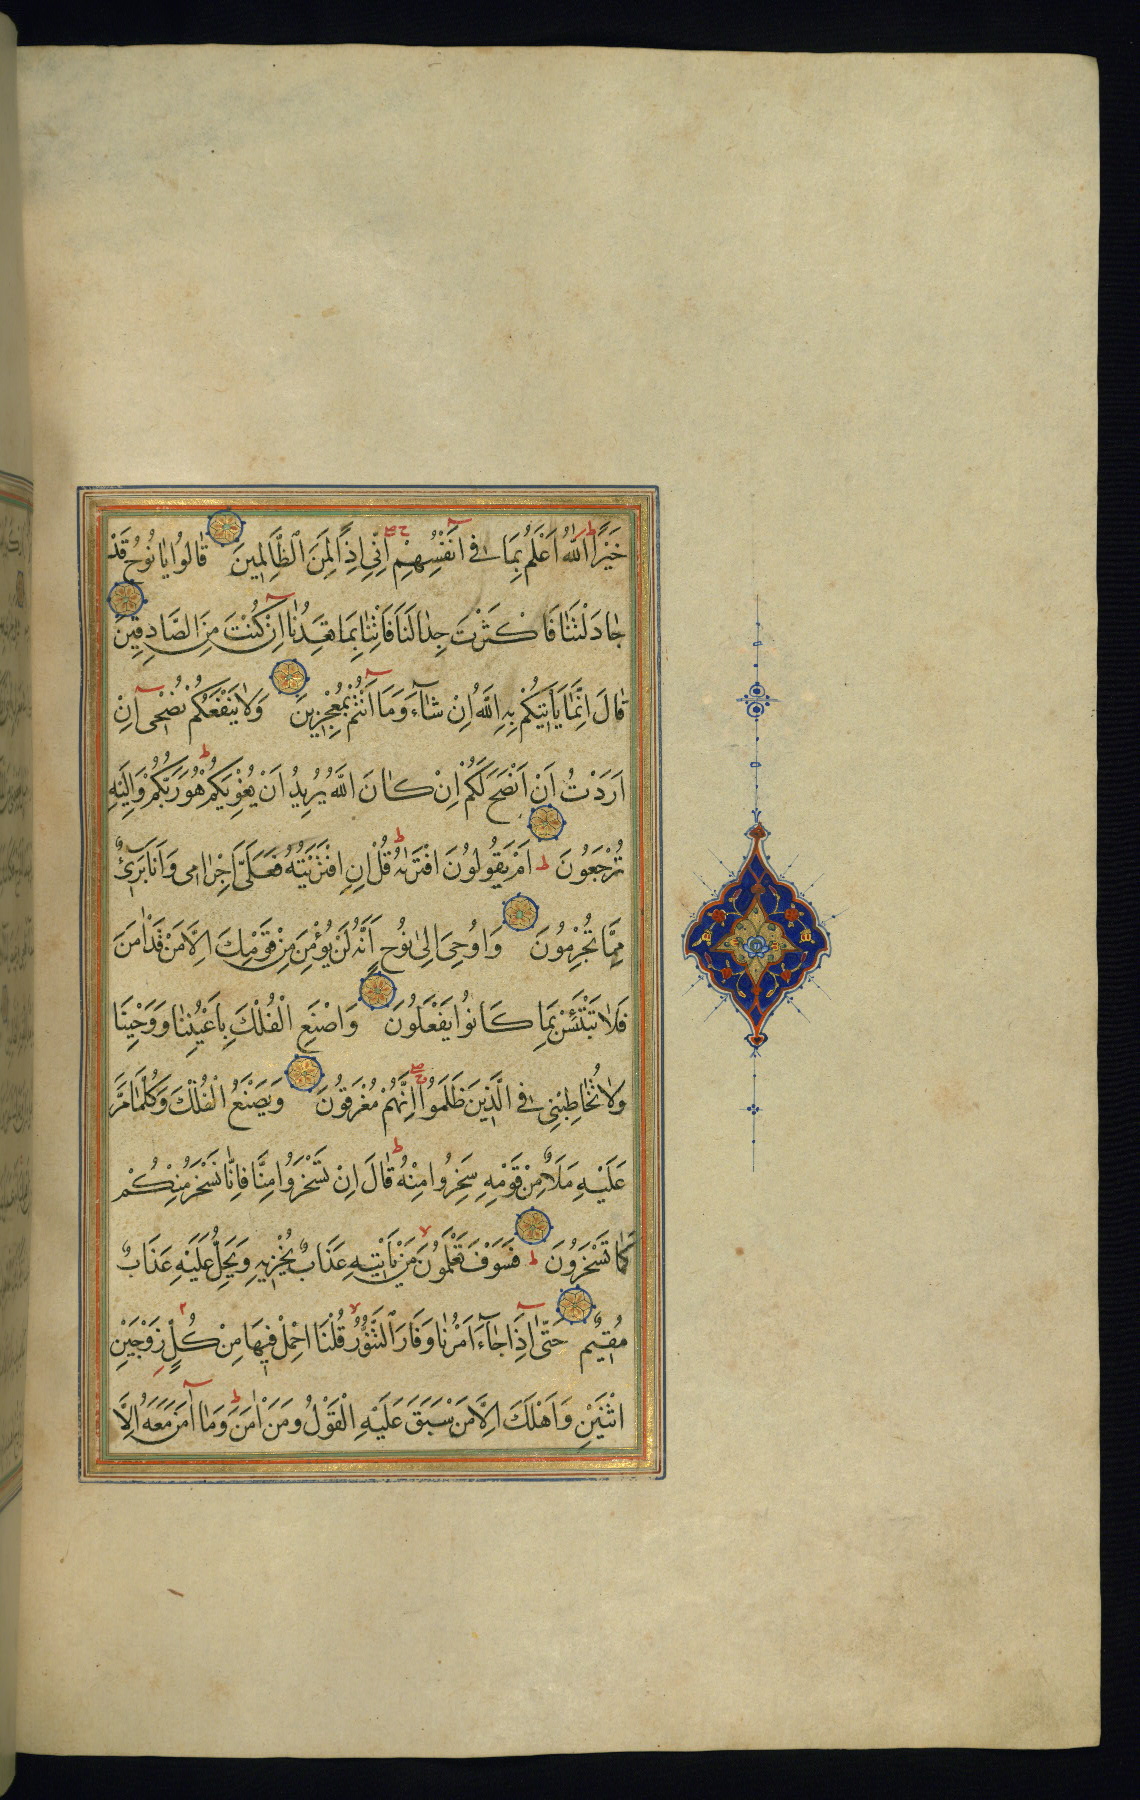 خَيْرًا اللّٰهُ اَعْلَمُ بِمَا فِى اَنْفُسِهِمْ اِنِّى اِذًا لَمِنَ الظَّالِمِينَ قَالُوا يَا نُوحُ قَدْ
جَادَلْتَنَا فَاَكْثَرْتَ جِدَالَنَا فَاْتِنَا بِمَا تَعِدُنَا اِنْ كُنْتَ مِنَ الصَّادِقِينَ
قَالَ اِنَّمَا يَاْتِيكُمْ بِهِ اللّٰهُ اِنْ شَآءَ وَمَا اَنْتُمْ بِمُعْجِزِينَ وَلَا يَنْفَعُكُمْ نُصْحِى اِنْ
اَرَدْتُ اَنْ اَنْصَحَ لَكُمْ اِنْ كَانَ اللّٰهُ يُرِيدُ اَنْ يُغْوِيَكُمْ هُوَ رَبُّكُمْ وَاِلَيْهِ
تُرْجَعُونَ اَمْ يَقُولُونَ افْتَرٰىهُ قُلْ اِنِ افْتَرَيْتُهُ فَعَلَىَّ اِجْرَامِى وَاَنَا بَرِىٓءٌ
مِمَّا تُجْرِمُونَ وَاُوحِىَ اِلٰى نُوحٍ اَنَّهُ لَنْ يُؤْمِنَ مِنْ قَوْمِكَ اِلَّا مَنْ قَدْ اٰمَنَ
فَلَا تَبْتَئِسْ بِمَا كَانُوا يَفْعَلُونَ وَاصْنَعِ الْفُلْكَ بِاَعْيُنِنَا وَوَحْيِنَا
وَلَا تُخَاطِبْنِى فِى الَّذِينَ ظَلَمُوا اِنَّهُمْ مُغْرَقُونَ وَيَصْنَعُ الْفُلْكَ وَكُلَّمَا مَرَّ
عَلَيْهِ مَلَاٌ مِنْ قَوْمِهِ سَخِرُوا مِنْهُ قَالَ اِنْ تَسْخَرُوا مِنَّا فَاِنَّا نَسْخَرُ مِنْكُمْ
كَمَا تَسْخَرُونَ فَسَوْفَ تَعْلَمُونَ مَنْ يَاْتِيهِ عَذَابٌ يُخْزِيهِ وَيَحِلُّ عَلَيْهِ عَذَابٌ
مُقِيمٌ حَتّٰى اِذَا جَآءَ اَمْرُنَا وَفَارَ التَّنُّورُ قُلْنَا احْمِلْ فِيهَا مِنْ كُلٍّ زَوْجَيْنِ
اثْنَيْنِ وَاَهْلَكَ اِلَّا مَنْ سَبَقَ عَلَيْهِ الْقَوْلُ وَمَنْ اٰمَنَ وَمَا اٰمَنَ مَعَهُ اِلَّا